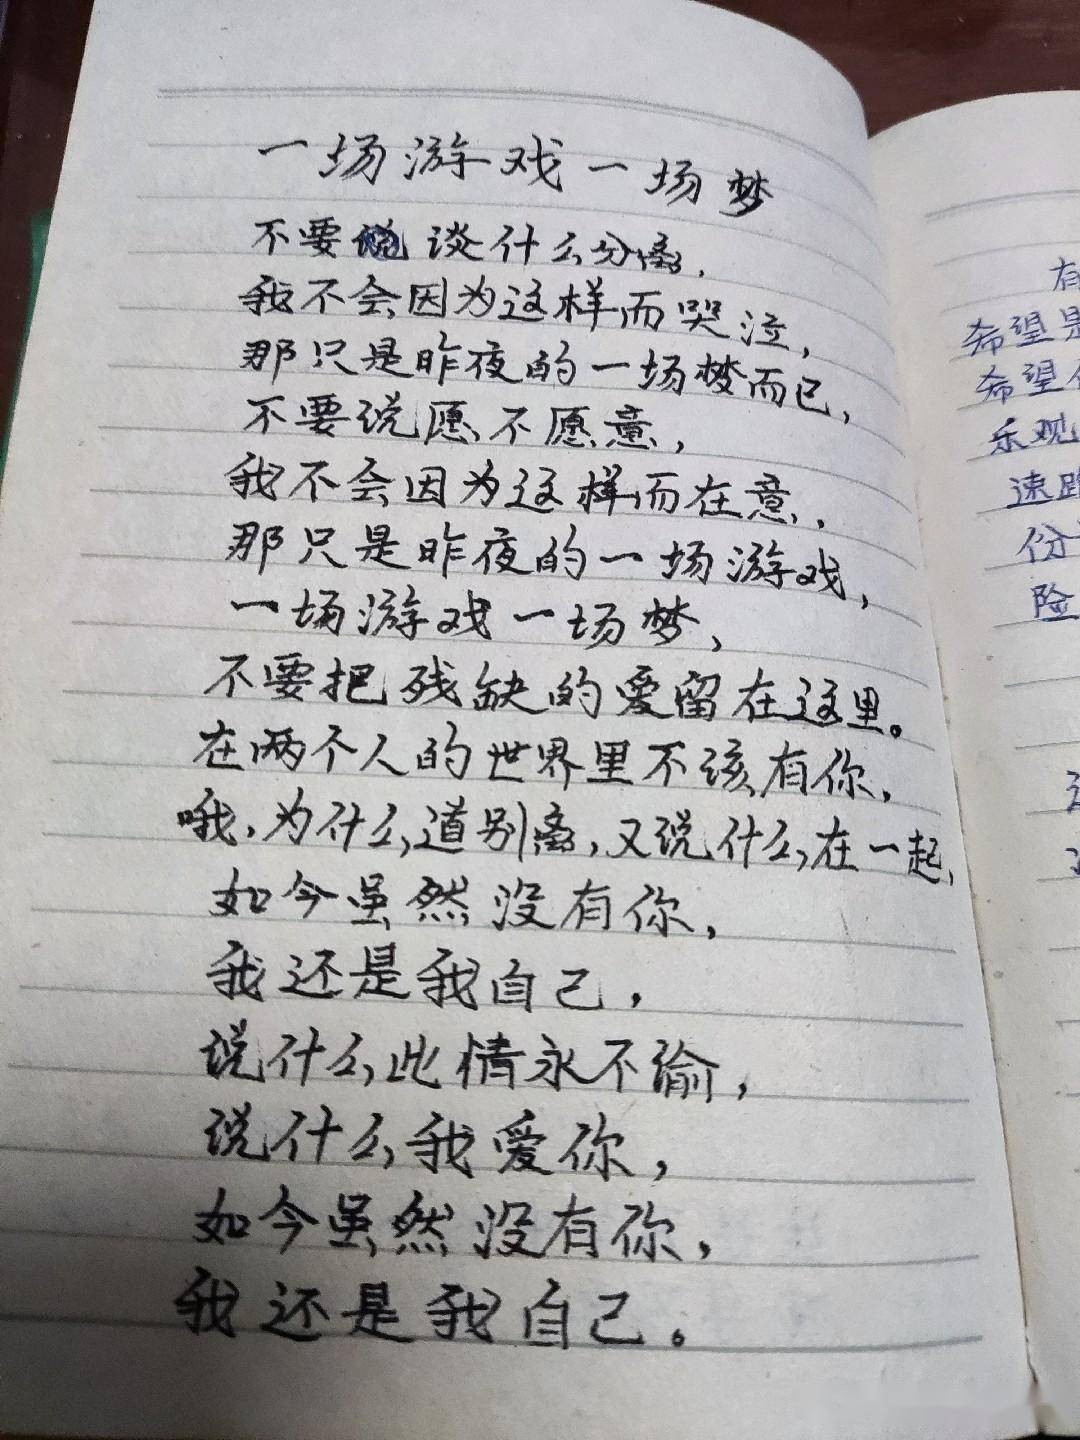 一场游戏一场梦
不要谈什么分离,
我不会因为这样而哭泣,
那只是昨夜的一场梦而已,
不要说愿不愿意,
我不会因为这样而在意,
那只是昨夜的一场游戏,
一场游戏一场梦,
不要把残缺的爱留在这里。
在两个人的世界里不该有你,
哦,为什么道别离,又说什么在一起,
如今虽然没有你,
我还是我自己,
说什么此情永不谕,
说什么我爱你,
如今虽然没有你,
我还是我自己。
有
希望是
希望
乐观
速
份
险